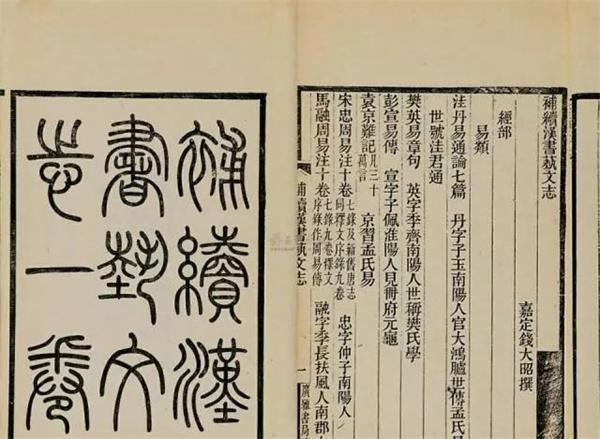 補續漢書蓺文志
嘉定錢大昭撰
經部
易類
洼丹易通論七篇 丹字子玉南陽人官大鴻臚世傳孟氏易
世號洼君通
樊英易章句 英字季齊南陽人世稱樊氏學
彭宣易傳 宣字子佩淮陽人見冊府元龜
袁京難記凡三十萬言 京習孟氏易
宋忠周易注十卷七錄及新舊唐志同釋文序錄九卷 忠字仲子南陽人
馬融周易注十卷七錄九卷釋文序錄作周易傳 融字季長扶風人南郡
補續漢書蓺文志 一 廣雅書局
補續漢
書蓺文
志一卷